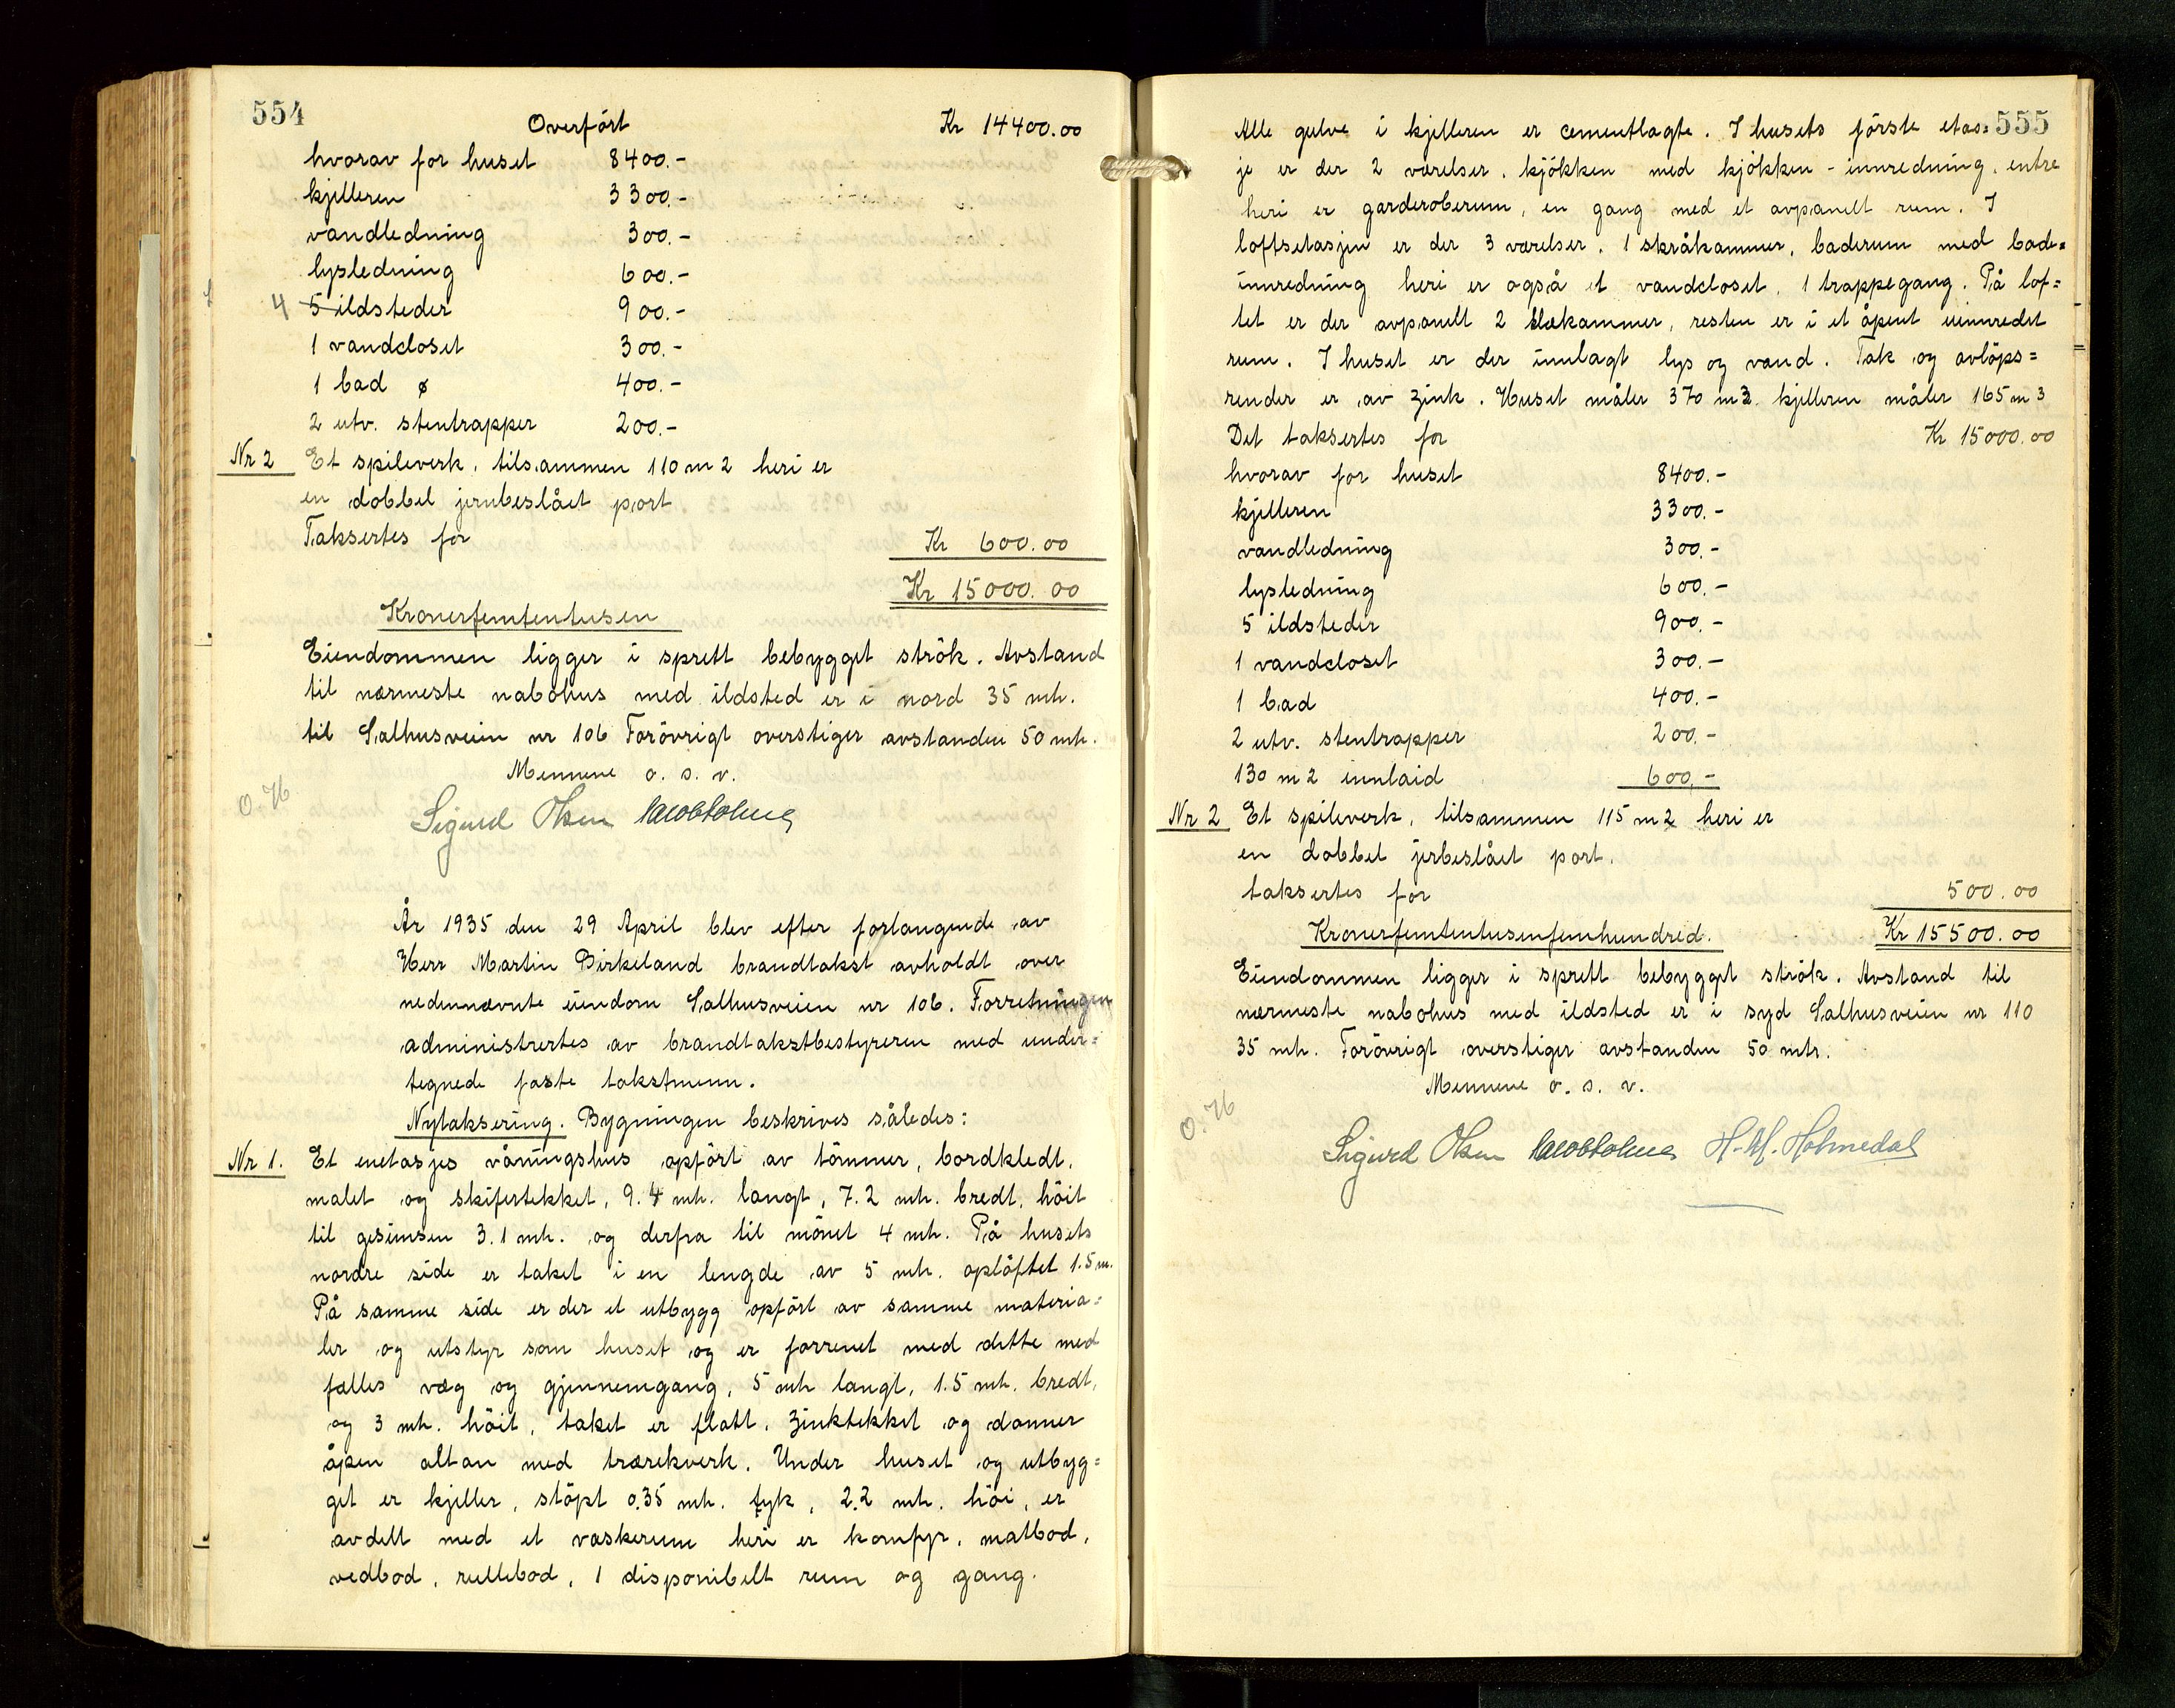 554
Overført Kr 14400.00
hvorav for huset 8400.-
kjelleren 3300.-
vandledning 300.-
lysledning 600.-
4 5 ildsteder 900.-
1 vandcloset 300.-
1 bad 400.-
2 utv. stentrapper 200.-
Nr 2 Et spileverk, tilsammen 110 m2 heri er
en dobbel jernbeslået port.
Taksertes for Kr 600.00
Kr 15000.00
Kronerfemtentusen
Eiendommen ligger i sprett bebygget strök. Avstand
til nærmeste nabohus med ildsted er i nord 35 mtr.
til Salhusveien nr 106 Forövrigt overstiger avstanden 50 mtr.
Mennene o. s. v.
O. H
Sigurd Olsen
År 1935 den 29 April blev efter forlangende av
Herr Martin Birkeland brandtakst avholdt over
nedennævnte eiendom Salhusveien nr 106. Forretningen
administrertes av brandtakstbestyreren med under=
tegnede faste takstmenn.
Nytaksering. Bygningen beskrives således:
Nr 1. Et enetasjes våningshus opfört av tömmer, bordkledt,
malet og skifertekket, 9.4 mtr. langt, 7.2 mtr. bredt, höit
til gesimsen 3.1 mtr. og derfra til mönet 4 mtr. På husets
nordre side er taket i en lengde av 5 mtr. oplöftet 1.5 m.
På samme side er der et utbygg opfört av samme materia=
ler og utstyr som huset og er forrenet med dette med
fælles væg og gjennemgang, 5 mtr langt, 1.5 mtr. bredt,
og 3 mtr. höit, taket er flatt, zinktekket og danner
åpen altan med trærekverk. Under huset og utbyg=
get er kjeller, stöpt 0.35 mtr. tyk, 2.2 mtr. höi, er
avdelt med et vaskerum heri er komfyr, matbod,
vedbod, rullebod, 1 disponibelt rum og gang.
555
Alle gulve i kjelleren er cementlagte. I husets förste etas=
je er der 2 værelser, kjökken med kjökken-innredning, entre
heri er garderoberum, en gang med et avpanelt rum. I
loftsetasjen er der 3 værelser, 1 skråkammer, baderum med bade=
innredning heri er også et vandcloset, 1 trappegang. På lof=
tet er der avpanelt 2 klækammer, resten er i et åpent uinnredet
rum. I huset er der innlagt lys og vand. Tak og avlöps=
render er av zink. Huset måler 370 m3 kjelleren måler 165 m3
Det taksertes for Kr 15000.00
hvorav for huset 8400.-
kjelleren 3300.-
vandledning 300.-
lysledning 600.-
5 ildsteder 900.-
1 vandcloset 300.-
1 bad 400.-
2 utv. stentrapper 200.-
130 m2 innlaid 600,-
Nr 2 Et spileverk, tilsammen 115 m2 heri er
en dobbel jerbeslået port.
taksertes for 500.00
Kronerfemtentusenfemhundred. Kr 15500.00
Eiendommen ligger i sprett bebygget strök. Avstand til
nærmeste nabohus med ildsted er i syd Salhusveien nr 110
35 mtr. Forövrigt overstiger avstanden 50 mtr.
Mennene o. s. v.
O. H
Sigurd Olsen H. M. Holmedal